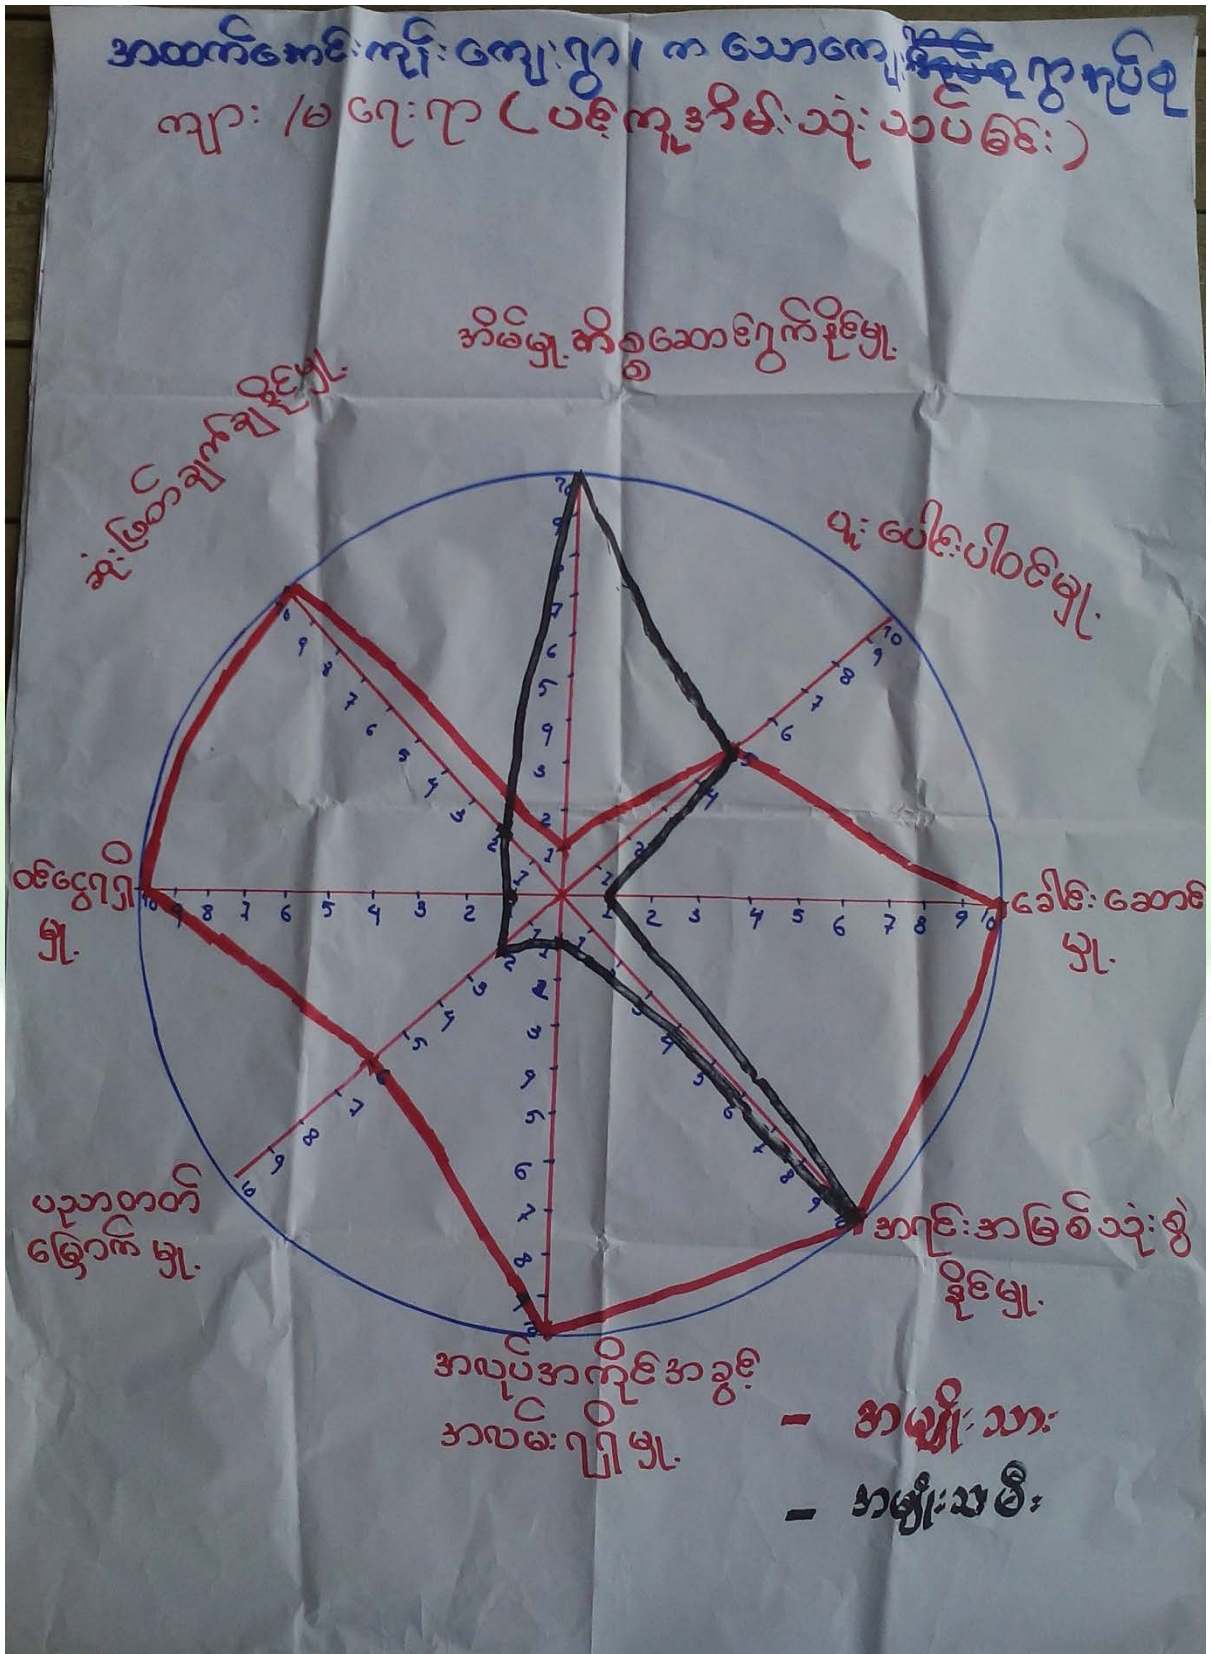 အထက်ကောင်းကျိုးကျေးရွာ၊ က သောကျေး ရွာအုပ်စု
ကျား /မ ရေးရာ ( ပင့်ကူအိမ်သုံးသပ်ခြင်း )
အိမ်မှု့ကိစ္စဆောင်ရွက်နိုင်မှု့
ဆုံးဖြတ်ချက်ချနိုင်မှု့
ပူးပေါင်းပါဝင်မှု့
ဝင်ငွေရရှိ
မှု့
ခေါင်းဆောင်
မှု့
ပညာတတ်
မြှောက်မှု့
အရင်းအမြစ်သုံးစွဲ
နိုင်မှု့
အလုပ်အကိုင်အခွင့်
အလမ်းရရှိမှု့
- အမျိုးသား
- အမျိုးသမီး